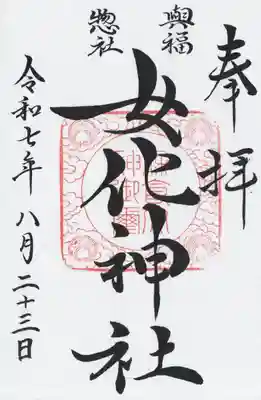 奉拝
興福
惣社
女化神社
令和七年 八月二十三日